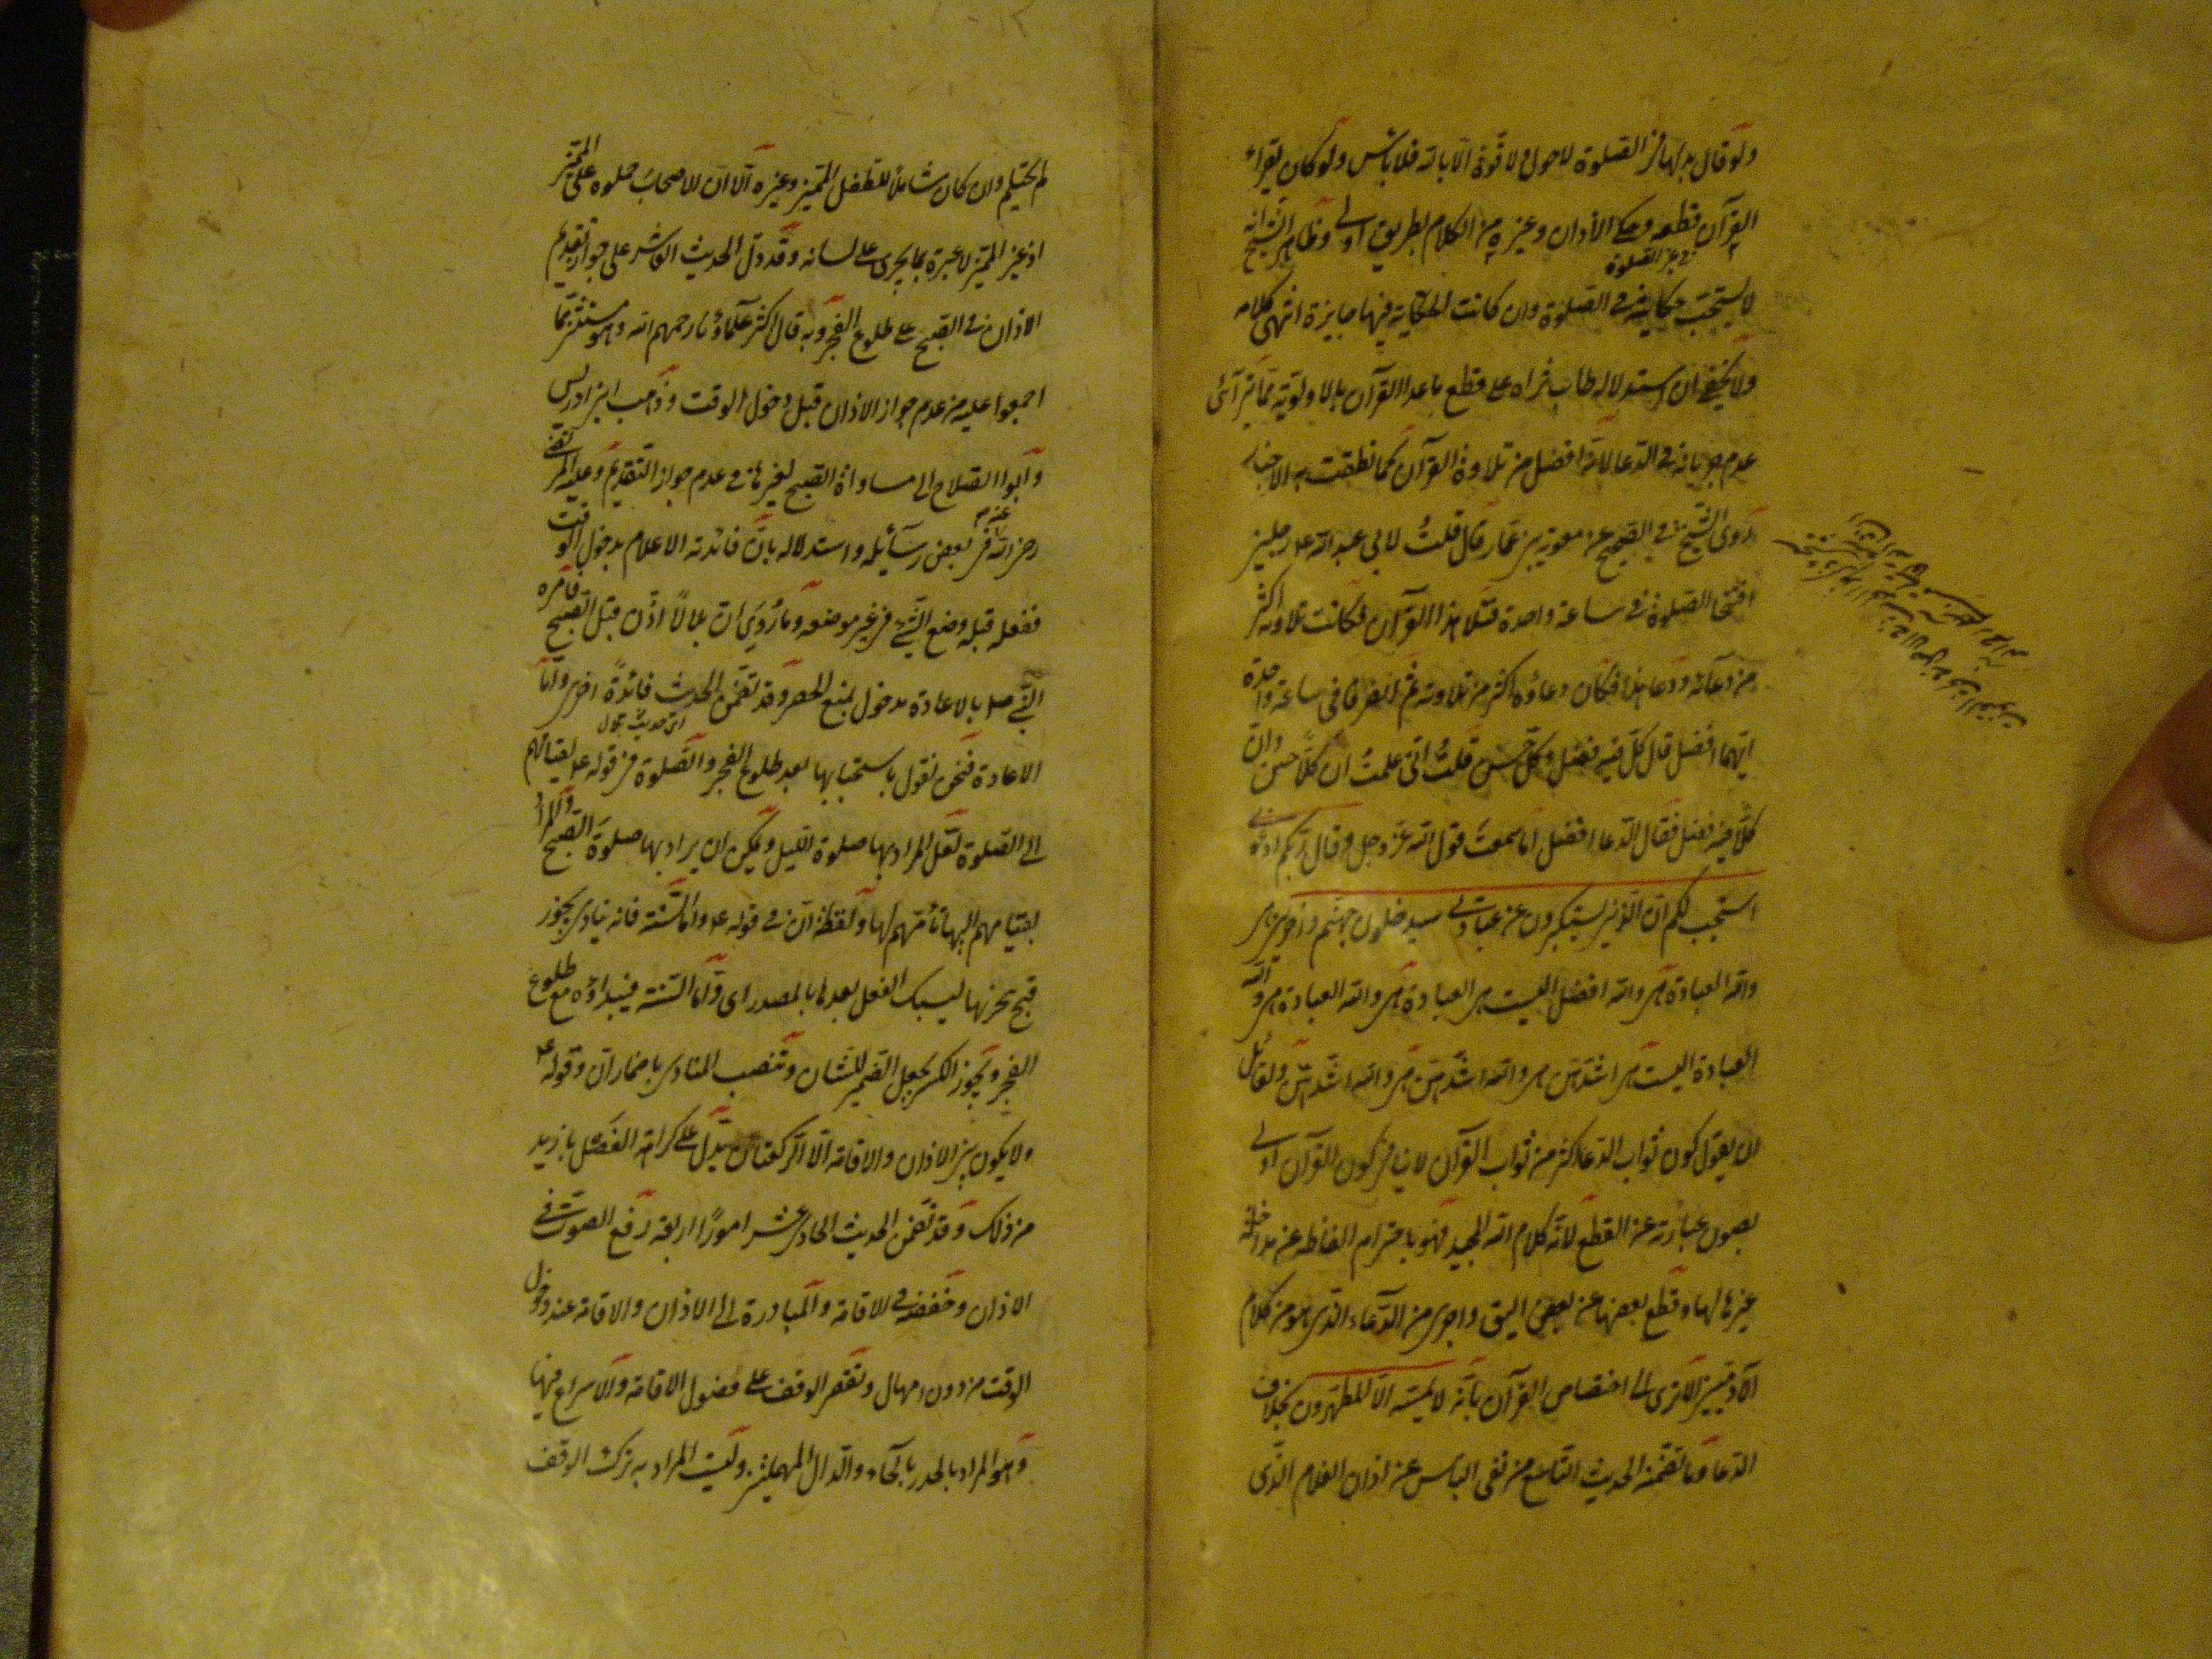 ولو قال بدلها في الصلوة لا حول ولا قوة الا بالله فلا باس ولو كان يقراء
القرآن قطعه وحكى الاذان وغيره من الكلام بطريق اولى وظاهر الشيخ انه
لا يستحب حكايته في الصلوة وان كانت الحكاية فيها جايزة انتهى كلامه
في غير الصلوة
ولا يخفى ان استدلاله طاب ثراه على قطع ما عدا القرآن بالاولوية مما يترآئ
عدم جريانه في الدعا لانه افضل من تلاوة القرآن كما نطقت به الاخبار
روى الشيخ في الصحيح عن معوية بن عمار قال قلتُ لابي عبد الله ع رجلين
افتتحا الصلوة في ساعة واحدة فتلا هذا القرآن فكانت تلاوته اكثر
من دعآئه ودعا هذا فكان دعاؤه اكثر من تلاوته ثم انصرفا في ساعة واحدة
ايهما افضل قال كلّ فيه فضل وكلّ حسن قلتُ انى علمتُ ان كلاً حسن وان
كلاً فيه فضل فقال الدعا افضل اما سمعت قول الله عز وجل وقال ربكم ادعونى
استجب لكم ان الذين يستكبرون عن عبادتى سيدخلون جهنم داخرين هى
والله العبادة هى والله افضل اليست هى العبادة هى والله العبادة هى والله
العبادة اليست هى اشدهن هى والله اشدهن هى والله اشدهن ولقائل
ان يقول كون ثواب الدعا اكثر من ثواب القرآن لا ينافى كون القرآن اولى
بصون عبارته عن القطع لانه كلام الله المجيد فهو باحترام الفاظه عن مداخلة
غيرها لها وقطع بعضها عن بعض اليق واحرى من الدعاء الذى هو من كلام
الآدميين الا ترى الى اختصاص القرآن بانه لا يمسه الا المطهرون بخلاف
الدعا وما تضمنه الحديث التاسع من نفى الباس عن اذان الغلام الذى
لم يحتلم وان كان شاملاً للطفل المميز وغيره الا ان الاصحاب حملوه على المميز
اذ غير المميز لا عبرة بما يجرى على لسانه وقد دل الحديث العاشر على جواز تقديم
الاذان في الصبح على طلوع الفجر وبه قال اكثر علماؤنا رحمهم الله وهو مستثنى مما
اجمعوا عليه من عدم جواز الاذان قبل دخول الوقت وذهب ابن ادريس
وابو الصلاح الى مساواة الصبح لغيرها في عدم جواز التقديم وعليه المرتضى
رضى الله عنه في بعض رسآئله واستدلاله بان فائدته الاعلام بدخول الوقت
ففعله قبله وضع الشئ في غير موضعه وما رُوِىَ ان بلالاً اذّن قبل الصبح فامره
النبي ص بالاعادة مدخول بمنع الحصر وقد تضمن الحديث فائدة اخرى واما
الاعادة فنحن نقول باستحبابها بعد طلوع الفجر والصلوة في قوله ع لقيامهم
الى الصلوة لعل المراد بها صلوة الليل ويمكن ان يراد بها صلوة الصبح والمراد
بقيامهم اليها تأهبهم لها ولفظة ان في قوله ع واما السنة فانه ينادى يجوز
فتح همزتها ليسبك الفعل بعدها بالمصدر اى واما السنة فنداؤه مع طلوع
الفجر ويجوز الكسر بجعل الضمير للشان وتنصب المنادى باضمار ان وقوله ع
ولا يكون بين الاذان والاقامة الا الركعتان يدل على كراهة الفصل بازيد
من ذلك وقد تضمن الحديث الحادى عشر اموراً اربعة رفع الصوت في
الاذان وخفضه في الاقامة والمبادرة الى الاذان والاقامة عند دخول
الوقت من دون امهال وتقصر الوقف على فصول الاقامة والاسراع فيها
وهو المراد بالحدر بالحآء والدال المهملتين وليس المراد به ترك الوقف